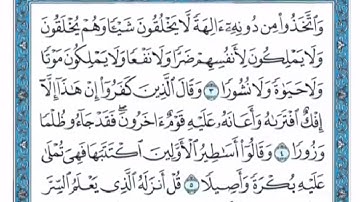 وَاتَّخَذُوا مِن دُونِهِ ءَالِهَةً لَّا يَخْلُقُونَ شَيْئًا وَهُمْ يُخْلَقُونَ
وَلَا يَمْلِكُونَ لِأَنفُسِهِمْ ضَرًّا وَلَا نَفْعًا وَلَا يَمْلِكُونَ مَوْتًا
وَلَا حَيَوٰةً وَلَا نُشُورًا ٣ وَقَالَ الَّذِينَ كَفَرُوٓا إِنْ هَٰذَآ إِلَّآ
إِفْكٌ افْتَرَىٰهُ وَأَعَانَهُۥ عَلَيْهِ قَوْمٌ ءَاخَرُونَ ۖ فَقَدْ جَآءُو ظُلْمًا
وَزُورًا ٤ وَقَالُوٓا أَسَٰطِيرُ الْأَوَّلِينَ اكْتَتَبَهَا فَهِىَ تُمْلَىٰ
عَلَيْهِ بُكْرَةً وَأَصِيلًا ٥ قُلْ أَنزَلَهُ الَّذِى يَعْلَمُ السِّرَّ